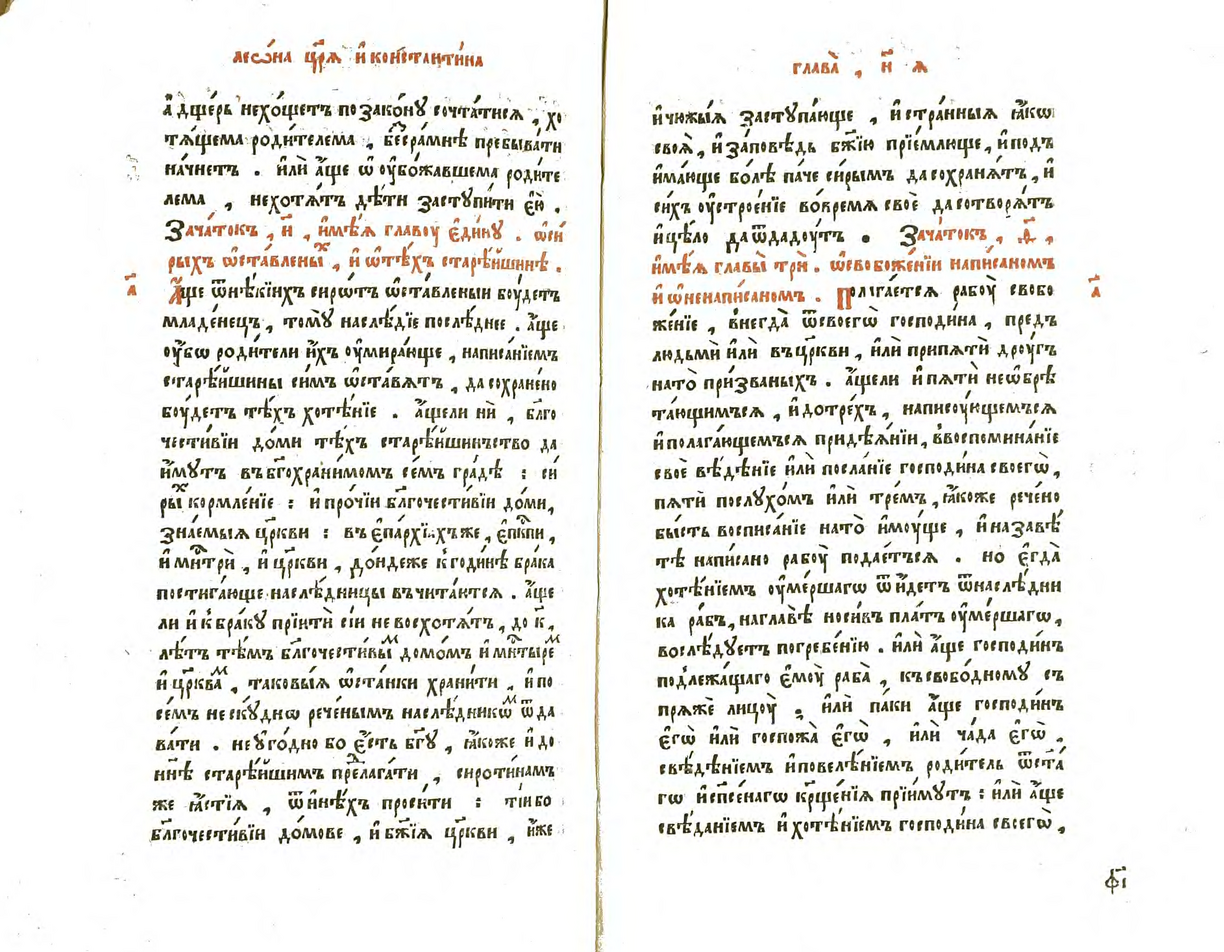 леѡ́на цр҃ѧ и҆ константи́на
а҆ дще́рь нехо́щетъ по зако́ну сочта́тисѧ , хо
тѧ́щема роди́телема , бесра́мнѣ пребыва́ти
на́чнетъ . и҆лѝ а҆́ще ѿ оу҆бо́жавшема роди́те
лема , нехотѧ́тъ дѣ́ти заступи́ти є҆ю̀ .
Зача́токъ , н҃ , и҆мѣ́ѧ главоу̀ є҆ди́ну . ѡ҆си́
рыхъ ѡ҆ста́влены́х , и҆ ѡ҆тѣ́хъ старѣ́йшинѣ .
а҃
А҆́ще ѿнѣ́кїихъ сиро́тъ ѡ҆ста́вленыи боу́детъ
младе́нецъ , томꙋ̀ наслѣ́дїе послѣ́днее . а҆́ще
оу҆́бѡ роди́тели и҆́хъ оу҆мира́юще , написа́нїемъ
старѣ́йшины си́мъ ѡ҆ста́вѧтъ , да сохране́но
боу́детъ тѣ́хъ хотѣ́нїе . а҆́щели нѝ , бл҃го
чести́вїи до́ми тѣ́хъ старѣ́йшинъство да
и҆́мутъ въ бг҃охрани́момъ се́мъ гра́дѣ : си́
ры́х кормле́нїе : и҆ про́чїи бл҃гочести́вїи до́ми ,
зна́емыѧ цр҃кви : въ є҆па́рхїѧхъ же , є҆пп҃и ,
и҆ мнт҃рѝ , и҆ цр҃кви , до́ндеже к годи́нѣ бра́ка
постига́юще наслѣ́дницы въчита́ютсѧ . а҆́ще
ли и҆ к бра́ку прїитѝ сїи не восхотѧ́тъ , до к҃ ,
лѣ́тъ тѣ́мъ бл҃гочести́вым домо́мъ и҆ мнт҃ыре́м
и҆ цр҃квам , таковы́ѧ ѡ҆ста́нки храни́ти , и҆ по
се́мъ не ску́днѡ рече́нымъ наслѣ́дникѡм ѿда
ва́ти . не уго́дно бо є҆́сть бг҃у , ꙗ҆́коже и҆ до
нн҃ѣ старѣ́йшимъ прелага́ти , сироти́намъ
же ꙗ҆́стїѧ , ѿ и҆нѣ́хъ проси́ти : тїи бо
бл҃гочести́вїи до́мове , и҆ бж҃їѧ цр҃кви , и҆́же
глава̀ , н҃ ѧ
и҆ чюжы́ѧ заступа́юще , и҆ стра́нныѧ ꙗ҆́кѡ
своѧ̀ , и҆ за́повѣдь бж҃їю прїе́млюще , и҆ подъ
и҆ма́юще бо́лѣ па́че си́рымъ да сохранѧ́тъ , и҆
си́хъ оу҆строе́нїе во́времѧ своѐ да сотворѧ́тъ
и҆ цѣ́ло да ѿдадоу́тъ . Зача́токъ , д҃ ,
и҆мѣ́ѧ главы̀ трѝ . ѡ҆свобоже́нїи напи́саномъ
и҆ ѡ҆ненапи́саномъ . Полага́етсѧ рабоу̀ свобо
а҃
же́нїе , внегда̀ ѿсвоегѡ̀ господи́на , предъ
людьмѝ и҆лѝ въ цр҃кви , и҆лѝ при пѧтѝ дроу́гъ
на то̀ при́званыхъ . а҆́щели и҆ пѧтѝ не ѡ҆брѣ
та́ющимъсѧ , и҆ до тре́хъ , написоу́ющемъсѧ
и҆ полага́ющемъсѧ при дѣѧ́нїи , в воспомина́нїе
своѐ вѣ́дѣнїе и҆лѝ посла́нїе господи́на своегѡ̀ ,
пѧтѝ послухо́мъ и҆лѝ тре́мъ , ꙗ҆́коже рече́но
бы́сть во списа́нїе на то̀ и҆моу́ще , и҆ на завѣ́
тѣ напи́сано рабоу̀ подае́тъсѧ . но є҆гда̀
хотѣ́нїемъ оу҆ме́ршагѡ ѿи́детъ ѿнаслѣ́дни
ка ра́бъ , на главѣ̀ носи́въ пла́тъ оу҆ме́ршагѡ ,
во слѣ́дуетъ погребе́нїю . и҆лѝ а҆́ще господи́нъ
подлежа́щаго є҆моу̀ раба̀ , къ свобо́дному съ
прѧжѐ лицоу̀ ; и҆лѝ па́ки а҆́ще господи́нъ
є҆гѡ̀ и҆лѝ госпожа̀ є҆гѡ̀ , и҆лѝ ча́да є҆гѡ̀ ,
свѣ́дѣнїемъ и҆ повелѣ́нїемъ роди́тель ѿ ст҃а
гѡ и҆ спсе́нагѡ кр҃ще́нїѧ прїи́мутъ : и҆лѝ а҆́ще
свѣ́данїемъ и҆ хотѣ́нїемъ господи́на своегѡ̀ ,
ф҃і